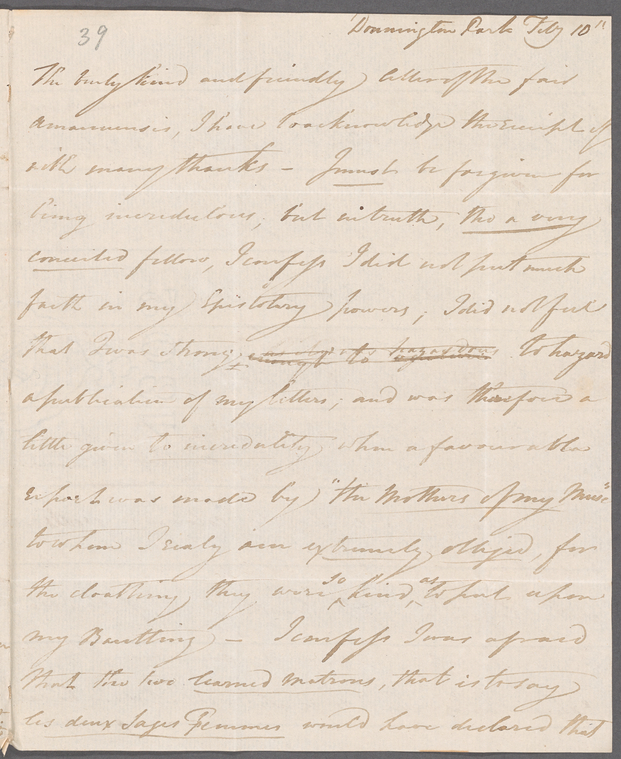 39
Donnington Park Feby 10th
The truly kind and friendly letter of the fair
amanuensis, I have to acknowledge the receipt of
with many thanks – I must be forgiven for
being incredulous; but in truth, tho a very
conceited fellow, I confess I did not put much
faith in my Epistolery powers; I did not feel
that I was strong to hazard
a publication of my letters; and was therefore a
little given to incredulity when a favourable
report was made by "the Mothers of my Muse"
to whom I realy am extremely obliged, for
the cloathing they were so kind, as to put upon
my Bantling – I confess I was afraid
that the two learned matrons, that is to say
les deux Sages Femmes would have declared that